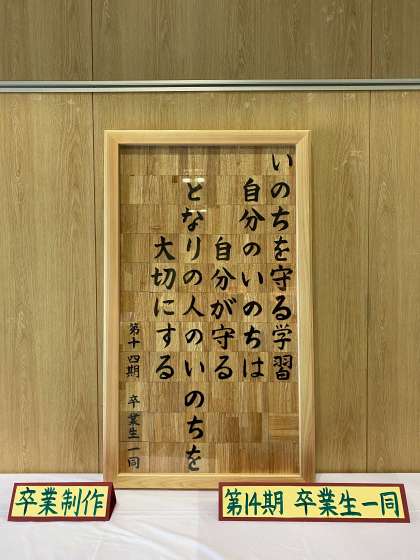 いのちを守る学習
自分のいのちは
自分が守る
となりの人のいのちを
大切にする
第十四期 卒業生一同
卒業制作
第14期 卒業生一同